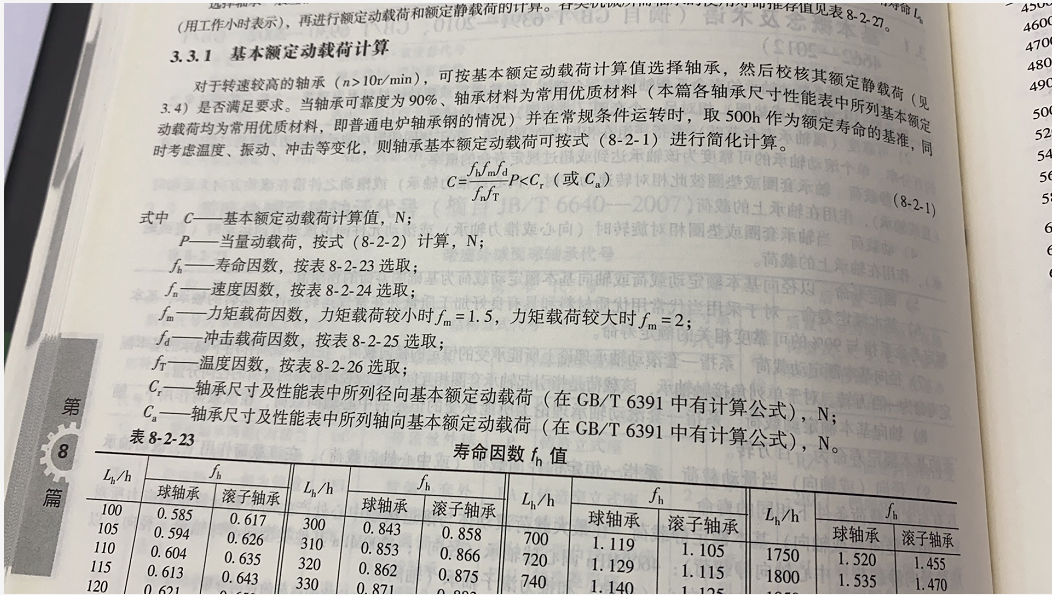 (用工作小时表示)，再进行额定动载荷和额定静载荷的计算。各类机械所需轴承的使用寿命推荐值见表8-2-27。
3.3.1 基本额定动载荷计算
对于转速较高的轴承（n>10r/min），可按基本额定动载荷计算值选择轴承，然后校核其额定静载荷（见
3.4）是否满足要求。当轴承可靠度为90%、轴承材料为常用优质材料（本篇各轴承尺寸性能表中所列基本额定
动载荷均为常用优质材料，即普通电炉轴承钢的情况）并在常规条件运转时，取500h作为额定寿命的基准，同
时考虑温度、振动、冲击等变化，则轴承基本额定动载荷可按式（8-2-1）进行简化计算。
C=\frac{f_h f_m f_d}{f_n f_T}P<C_r（或C_a）
(8-2-1)
式中 C——基本额定动载荷计算值，N；
P——当量动载荷，按式（8-2-2）计算，N；
f_h——寿命因数，按表8-2-23选取；
f_n——速度因数，按表8-2-24选取；
f_m——力矩载荷因数，力矩载荷较小时f_m=1.5，力矩载荷较大时f_m=2；
f_d——冲击载荷因数，按表8-2-25选取；
f_T——温度因数，按表8-2-26选取；
C_r——轴承尺寸及性能表中所列径向基本额定动载荷（在GB/T 6391中有计算公式），N；
C_a——轴承尺寸及性能表中所列轴向基本额定动载荷（在GB/T 6391中有计算公式），N。
第
8
篇
表8-2-23 寿命因数f_h值
L_h/h f_h L_h/h f_h L_h/h f_h L_h/h f_h
球轴承 滚子轴承 球轴承 滚子轴承 球轴承 滚子轴承 球轴承 滚子轴承
100 0.585 0.617 300 0.843 0.858 700 1.119 1.105 1750 1.520 1.455
105 0.594 0.626 310 0.853 0.866 720 1.129 1.115 1800 1.535 1.470
110 0.604 0.635 320 0.862 0.875 740 1.140
115 0.613 0.643 330 0.871
120 0.621
4600